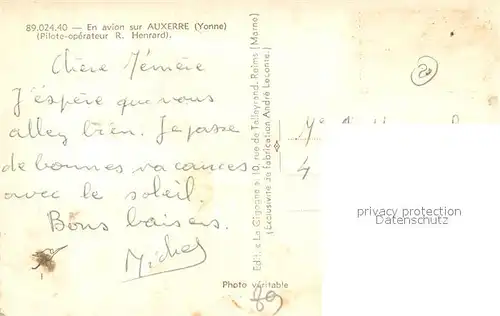 89.024.40 — En avion sur AUXERRE (Yonne)
(Pilote-opérateur R. Henrard).
Chère Mémère
J'espère que vous
allez bien. Je passe
de bonnes vacances
avec le soleil.
Bons baisers.
Michel
Photo véritable
Edit. « La Cigogne », 10, rue de Talleyrand, Reims (Marne)
(Exclusivité de fabrication André Leconte)
4
privacy protection
Datenschutz